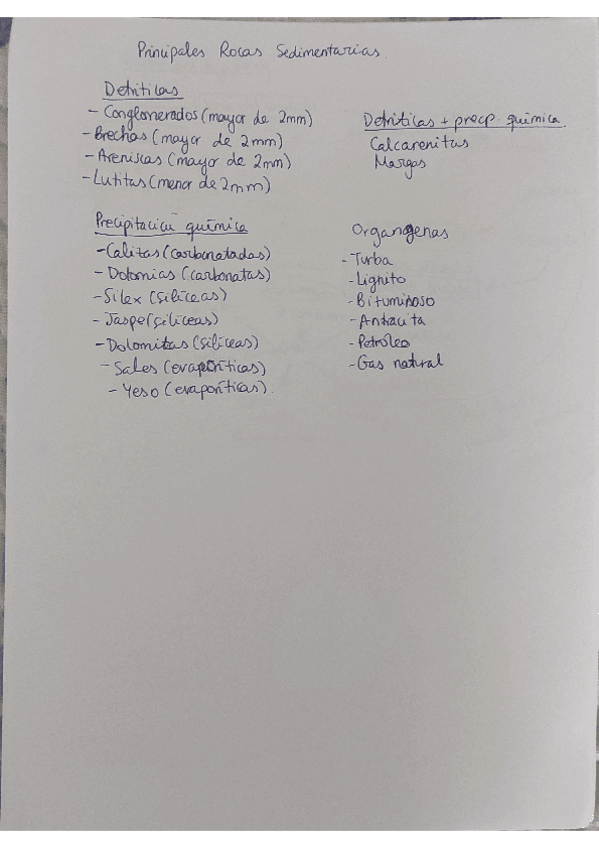 Principales Rocas Sedimentarias.
Detríticas
- Conglomerados (mayor de 2mm)
- Brechas (mayor de 2mm)
- Areniscas (mayor de 2mm)
- Lutitas (menor de 2mm)
Detríticas + precp. química
Calcarenitas
Margas
Precipitación química
- Calizas (carbonatadas)
- Dolomias (carbonatas)
- Silex (silíceas)
- Jaspe (silíceas)
- Dolomitas (silíceas)
- Sales (evaporíticas)
- Yeso (evaporíticas).
Organogenas
- Turba
- Lignito
- Bituminoso
- Antracita
- Petróleo
- Gas natural